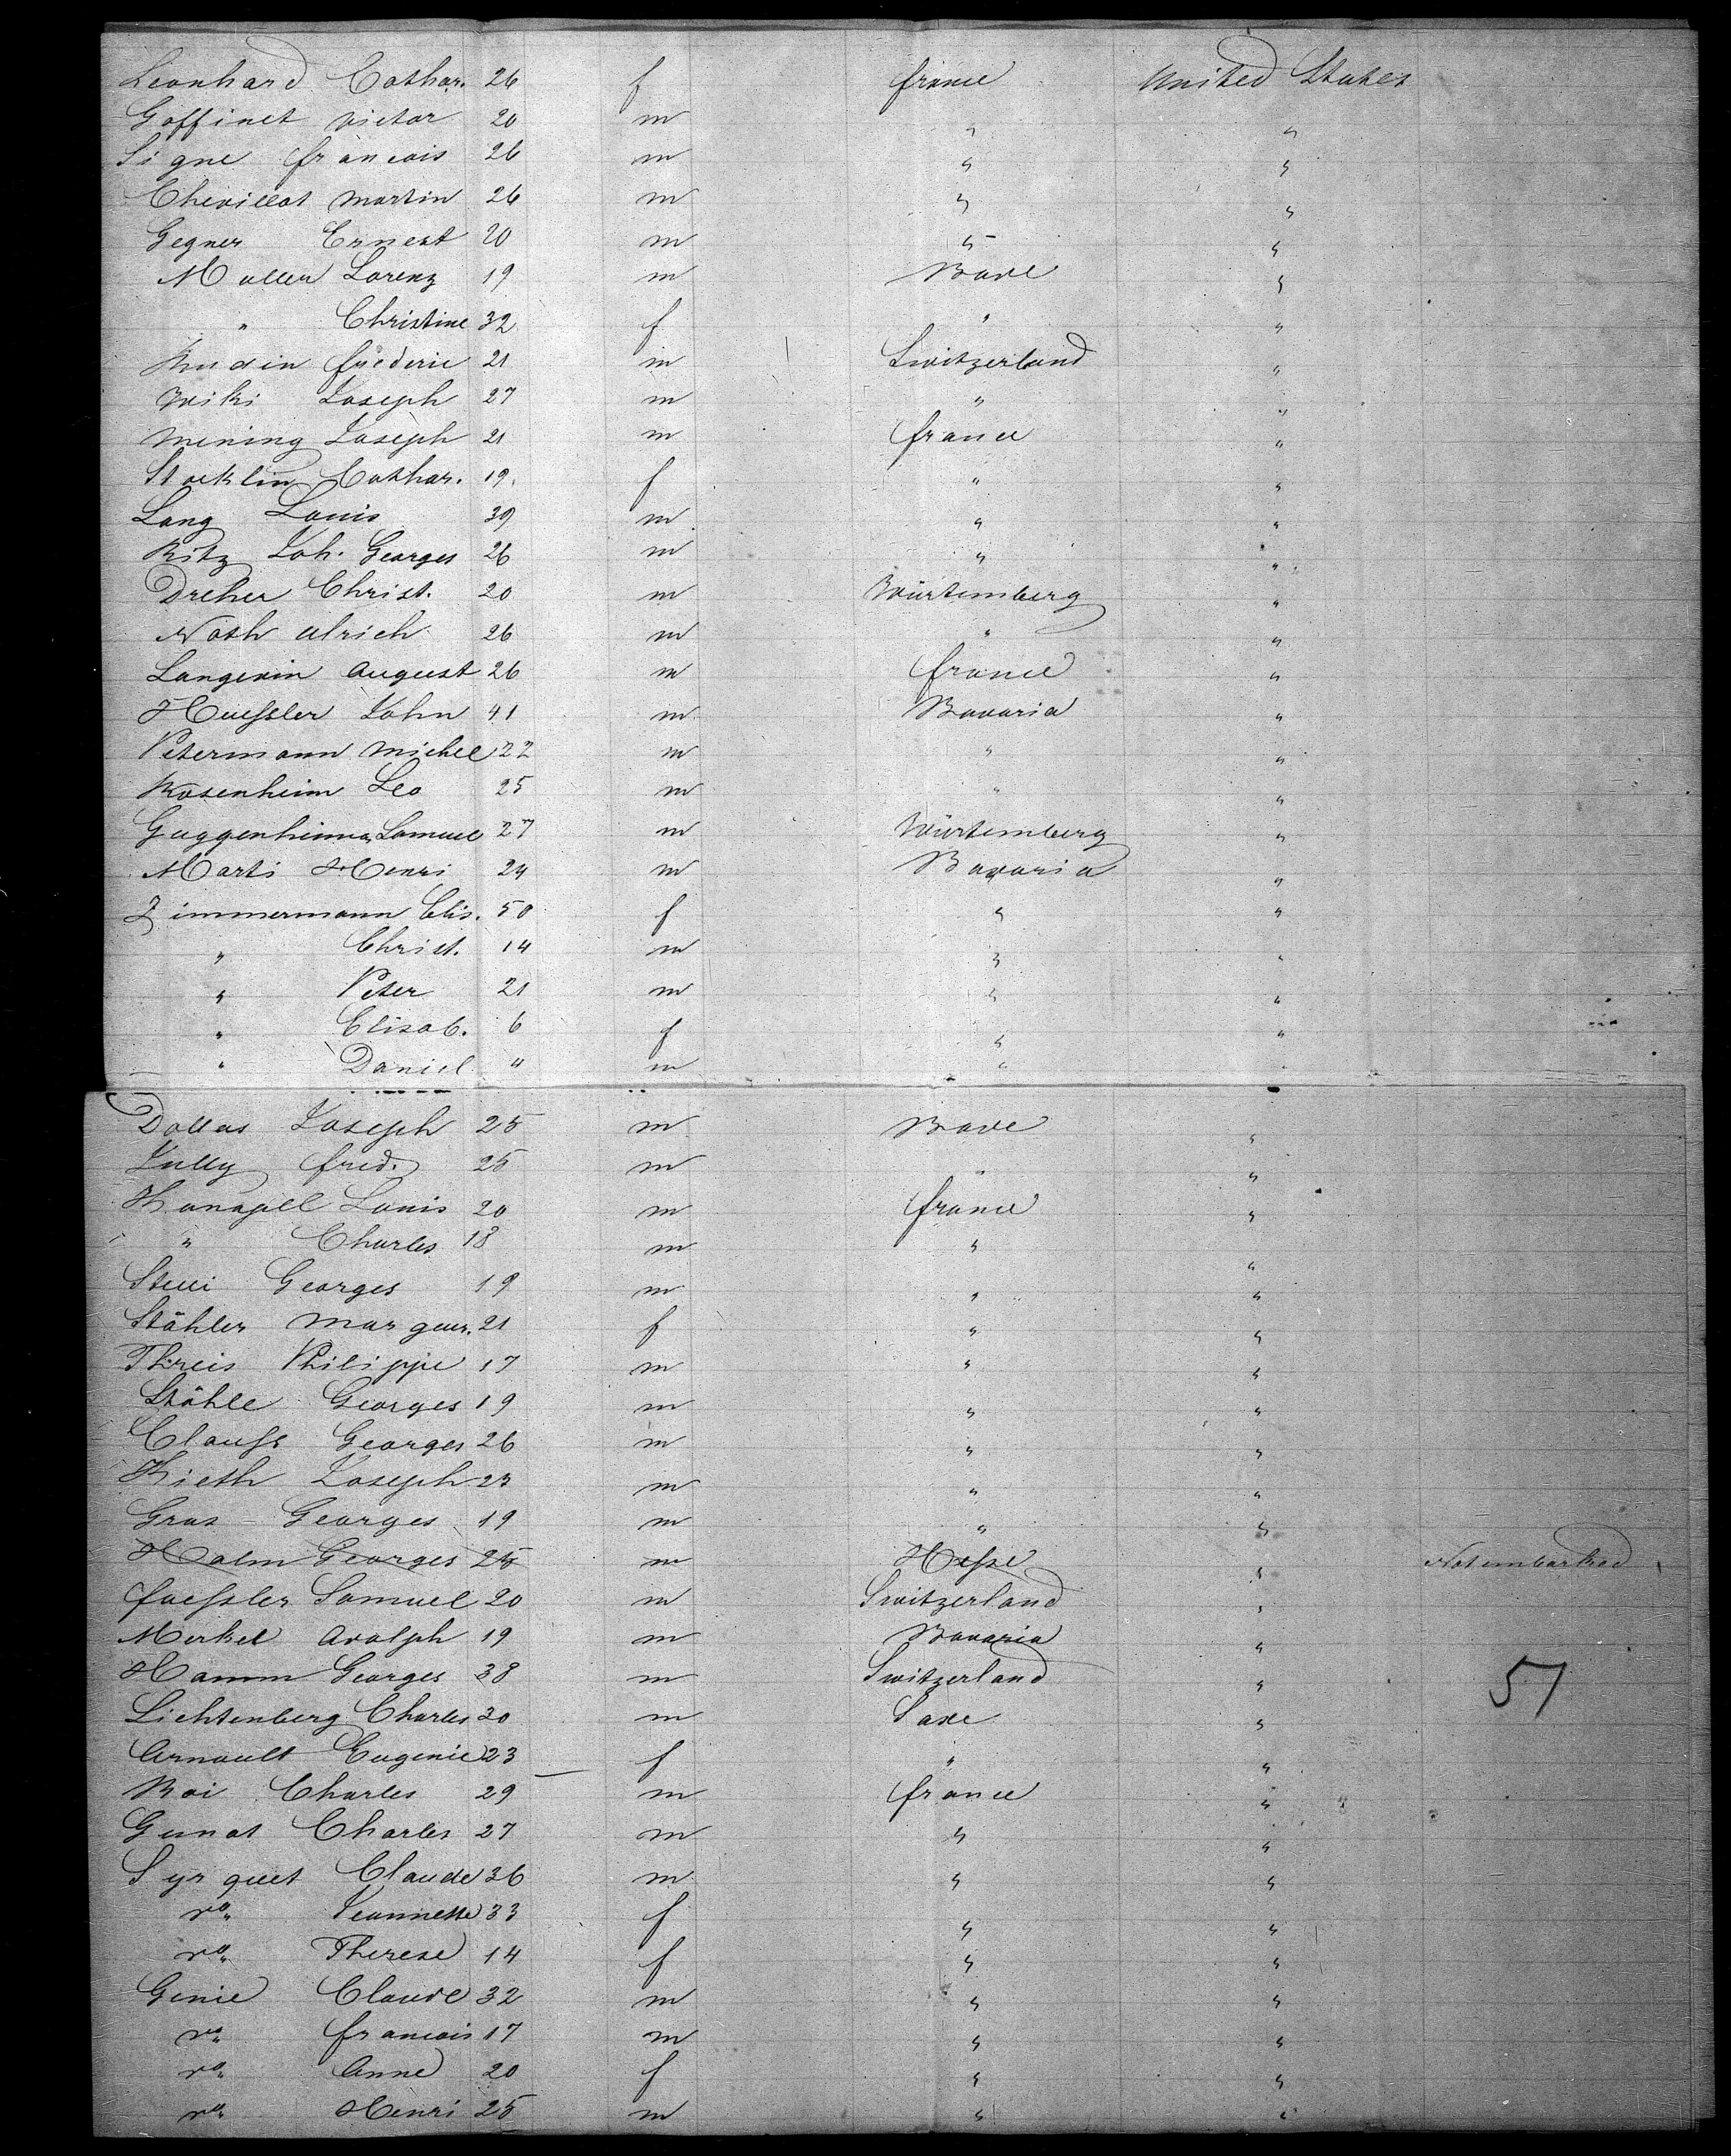 Leonhard Cathar. 26 f france United States
Goffinet victor 20 m " "
Signe francois 26 m " "
Chevillot martin 26 m " "
Gegner Ernest 20 m " "
Muller Lorenz 19 m Bade "
" Christine 32 f " "
fréderic 21 m Switzerland "
Wiki Joseph 27 m " "
Mening Joseph 21 m france "
Stocklin Cathar. 19 f " "
Lang Louis 39 m " "
Ritz Joh. Georges 26 m " "
Dreher Christ. 20 m Würtemberg "
Noth ulrich 26 m " "
Langevin august 26 m france "
Huessler John 41 m Bavaria "
Petermann Michel 22 m " "
Rosenheim Leo 25 m " "
Guggenheima Samuel 27 m Würtemberg "
Marti Henri 24 m Bavaria "
Zimmermann Elis. 50 f " "
" Christ. 14 m " "
" Peter 21 m " "
" Elisab. 6 f " "
" Daniel " m " "
Dollas Joseph 25 m Bade "
Jully fred. 25 m " "
Louis 20 m france "
" Charles 18 m " "
Stelli Georges 19 m " "
Stähler Marguer. 21 f " "
Threis Philippe 17 m " "
Stähle Georges 19 m " "
Clauss Georges 26 m " "
Kieth Joseph 27 m " "
Gras Georges 19 m " "
Halm Georges 25 m Hesse " Not embarked
fuessler Samuel 20 m Switzerland "
Merkel Adolph 19 m Bavaria "
Hamm Georges 38 m Switzerland " 51
Lichtenberg Charles 20 m Saxe "
Arnault Eugenie 23 f " "
Roi Charles 29 m france "
Gunat Charles 27 m " "
Syrquet Claude 36 m " "
do Jeannette 33 f " "
do Therese 14 f " "
Genie Claude 32 m " "
do francois 17 m " "
do Anne 20 f " "
do Henri 25 m " "